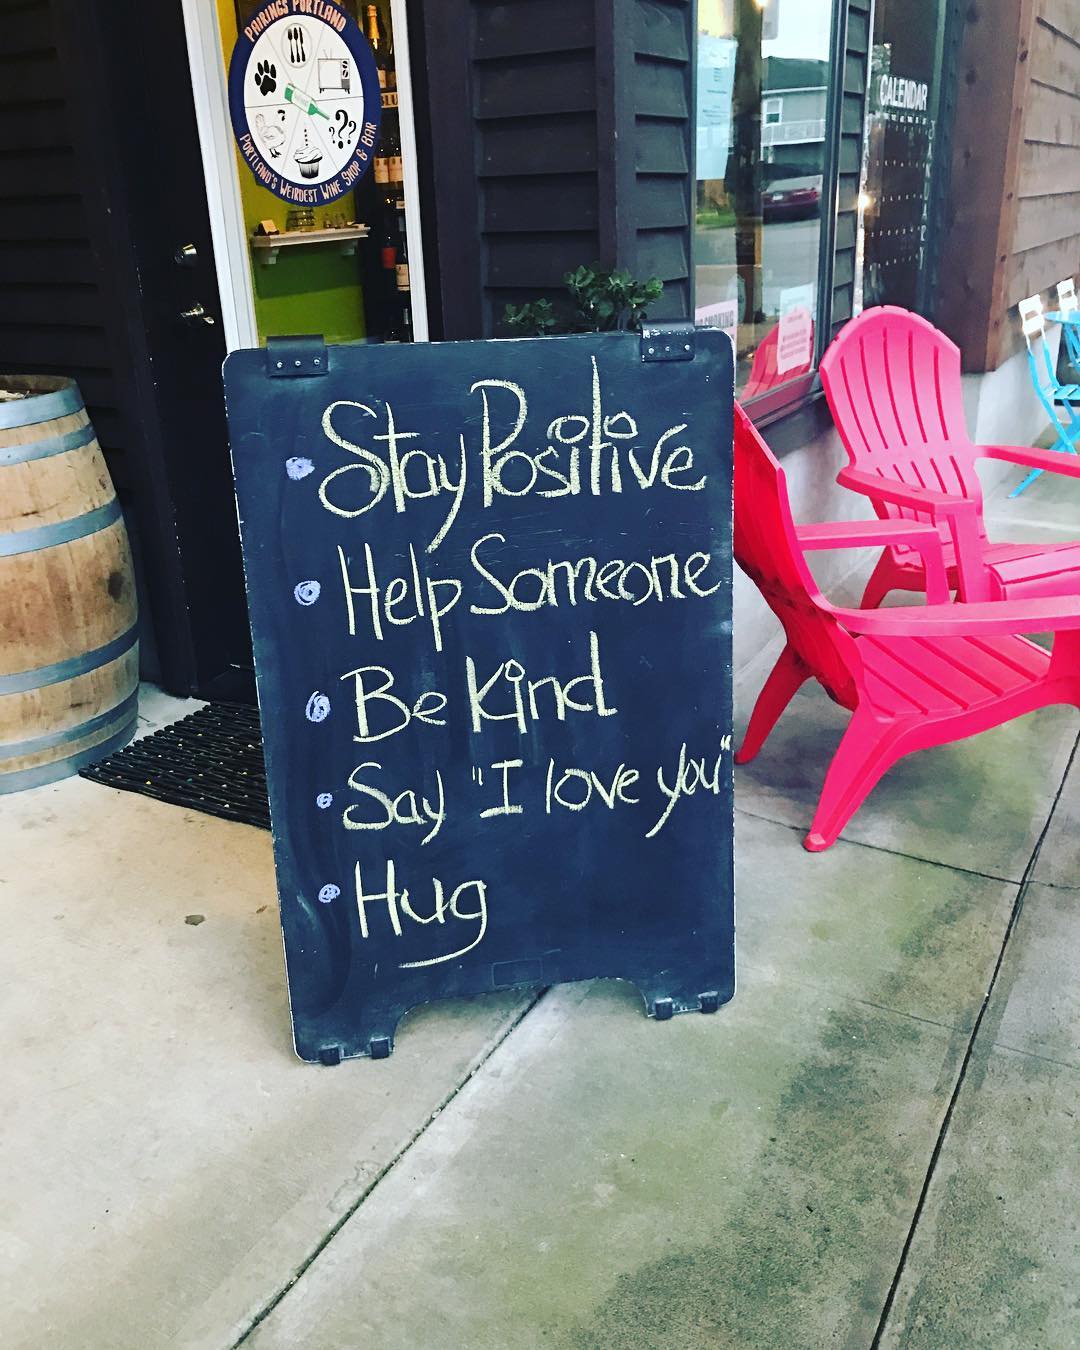 PAIRINGS PORTLAND
???
PORTLAND'S WEIRDEST WINE SHOP & BAR
CALENDAR
SMOKING
Stay Positive
Help Someone
Be Kind
Say "I love you"
Hug